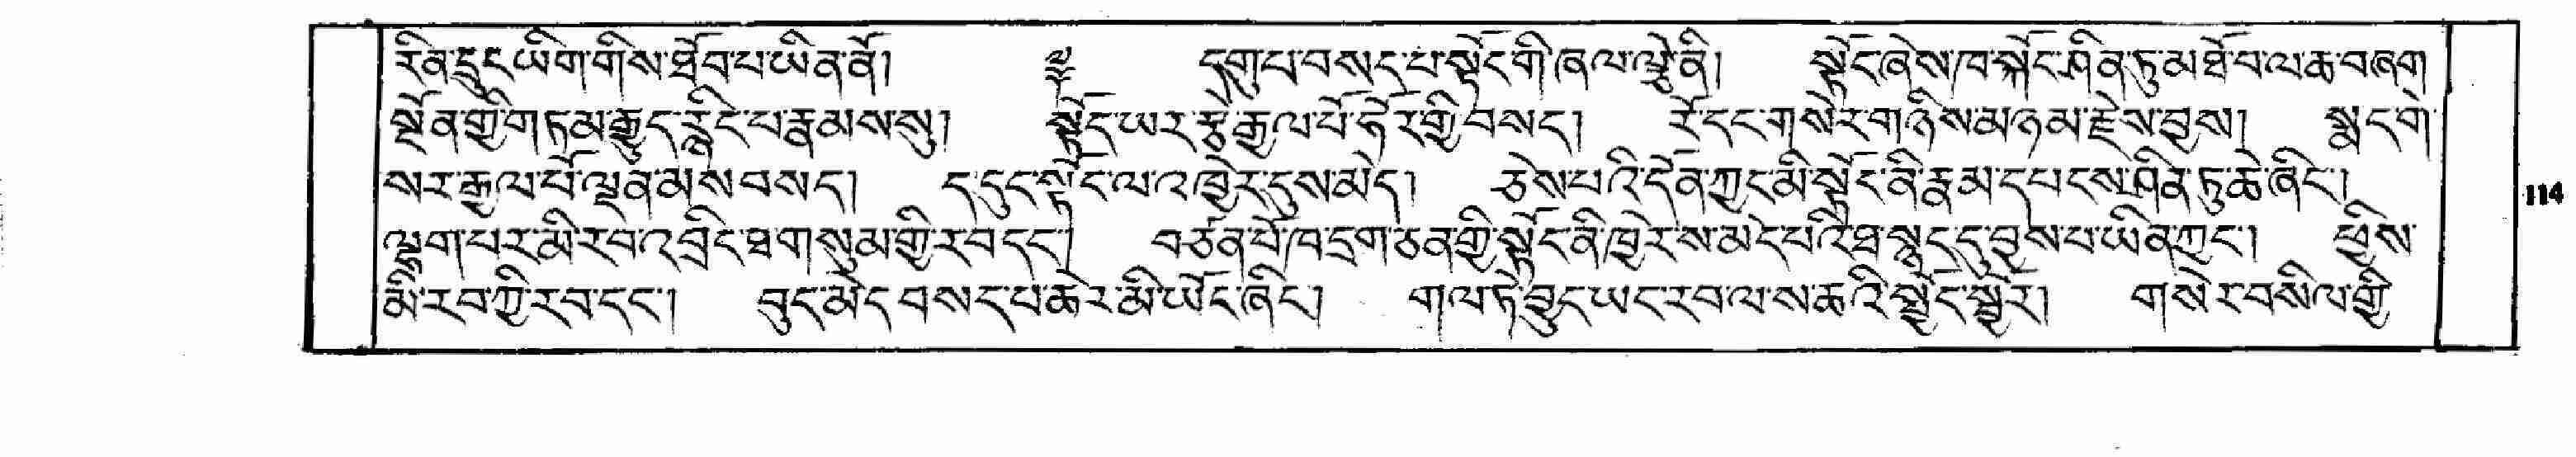 རིན་དྲུང་ཡིག་གིས་ཐོབ་པ་ཡིན་ནོ། ༈ དགུ་པ་བསད་པ་སྟོང་གི་ཞལ་ལྕེ་ནི། སྟོང་ཞེས་ཁ་སྐོང་ཤིན་ཏུ་མ་ཐོབ་ལ་ཆ་བཞག
སྔོན་གྱི་གཏམ་རྒྱུད་རྙིང་པ་རྣམས་སུ། སྟོད་ཡར་རྩེ་རྒྱལ་པོ་ཧོར་གྱི་བསད། རོ་དང་གསེར་གཉིས་མཉམ་རྗེས་བྱས། སྨད་གེ་
སར་རྒྱལ་པོ་ལྡན་མས་བསད། ད་དུང་སྟོང་ལ་འཁྱེར་དུས་མེད། ཅེས་པའི་དོན་ཀྱང་མི་སྟོང་ནི་རྣམ་དཔངས་ཤིན་ཏུ་ཆེ་ཞིང་།
ལྷག་པར་མི་རབ་འབྲིང་ཐ་གསུམ་གྱི་རབ་དང་། བཙན་པོ་ཁ་དྲག་ཅན་གྱི་སྟོང་ནི་ཁྱེར་ས་མེད་པའི་ཐ་སྙད་དུ་བྱས་པ་ཡིན་ཀྱང་། ཕྱིས་
མི་རབ་ཀྱི་རབ་དང་། བུད་མེད་བསད་པ་ཆེར་མི་ཡོང་ཞིང་། གལ་ཏེ་བྱུང་ཡང་རབ་ལ་ས་ཆའི་སྟོང་སྦྱོར། གསེར་བསིལ་གྱི
114